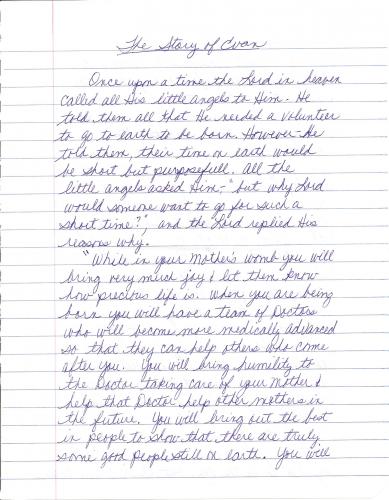 The Story of Evan
Once upon a time the Lord in heaven
called all His little angels to Him - He
told them all that He needed a volunteer
to go to earth to be born. However - He
told them, their time on earth would
be short but purposefull. All the
little angels asked Him, - "but why Lord
would someone want to go for such a
short time?", and the Lord replied His
reasons why.
"While in your Mother's womb you will
bring very much joy & let them know
how precious life is. When you are being
born you will have a team of Doctors
who will become more medically advanced
so that they can help others who come
after you. You will bring humility to
the Doctor taking care of your Mother &
help that Doctor help other mothers in
the future. You will bring out the best
in people to show that there are truly
some good people still on earth. You will